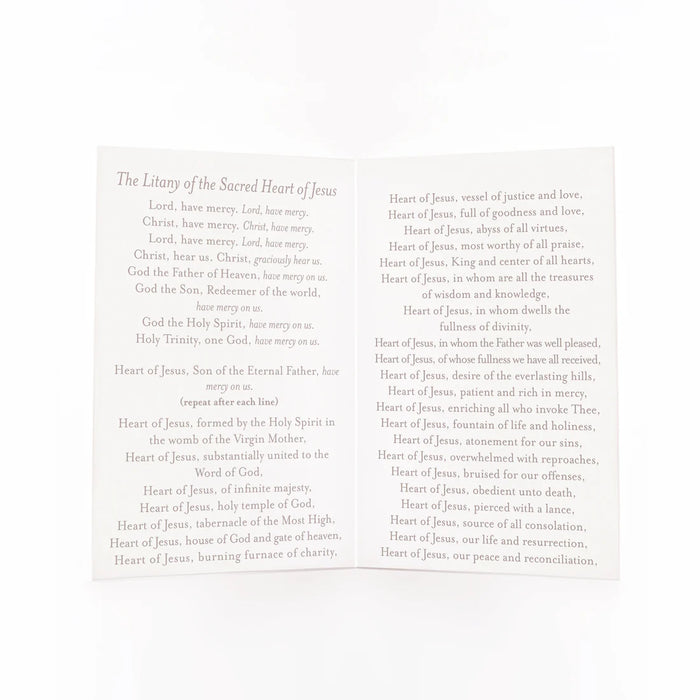 The Litany of the Sacred Heart of Jesus
Lord, have mercy. Lord, have mercy.
Christ, have mercy. Christ, have mercy.
Lord, have mercy. Lord, have mercy.
Christ, hear us. Christ, graciously hear us.
God the Father of Heaven, have mercy on us.
God the Son, Redeemer of the world,
have mercy on us.
God the Holy Spirit, have mercy on us.
Holy Trinity, one God, have mercy on us.
Heart of Jesus, Son of the Eternal Father, have
mercy on us.
(repeat after each line)
Heart of Jesus, formed by the Holy Spirit in
the womb of the Virgin Mother,
Heart of Jesus, substantially united to the
Word of God,
Heart of Jesus, of infinite majesty,
Heart of Jesus, holy temple of God,
Heart of Jesus, tabernacle of the Most High,
Heart of Jesus, house of God and gate of heaven,
Heart of Jesus, burning furnace of charity,
Heart of Jesus, vessel of justice and love,
Heart of Jesus, full of goodness and love,
Heart of Jesus, abyss of all virtues,
Heart of Jesus, most worthy of all praise,
Heart of Jesus, King and center of all hearts,
Heart of Jesus, in whom are all the treasures
of wisdom and knowledge,
Heart of Jesus, in whom dwells the
fullness of divinity,
Heart of Jesus, in whom the Father was well pleased,
Heart of Jesus, of whose fullness we have all received,
Heart of Jesus, desire of the everlasting hills,
Heart of Jesus, patient and rich in mercy,
Heart of Jesus, enriching all who invoke Thee,
Heart of Jesus, fountain of life and holiness,
Heart of Jesus, atonement for our sins,
Heart of Jesus, overwhelmed with reproaches,
Heart of Jesus, bruised for our offenses,
Heart of Jesus, obedient unto death,
Heart of Jesus, pierced with a lance,
Heart of Jesus, source of all consolation,
Heart of Jesus, our life and resurrection,
Heart of Jesus, our peace and reconciliation,